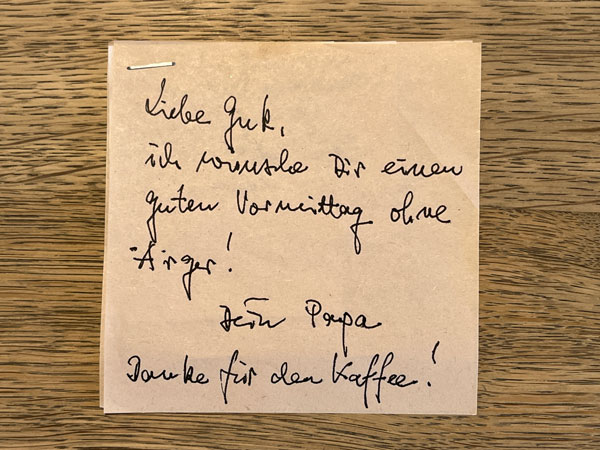 Liebe Guk,
ich wünsche Dir einen
guten Vormittag ohne
Ärger!
Dein Papa
Danke für den Kaffee!